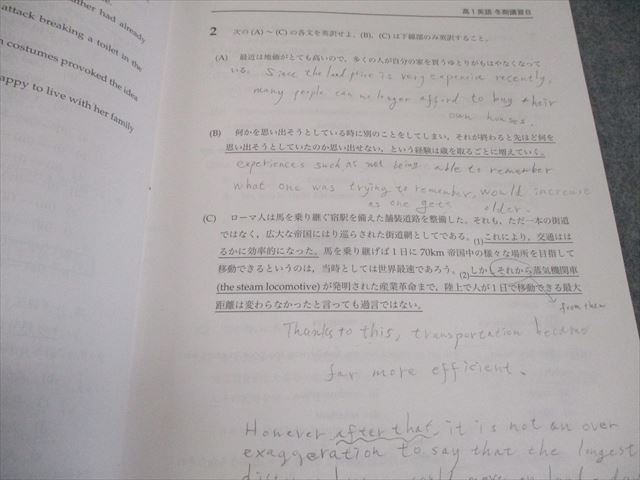 ather had already
attack breaking a toilet in the
n costumes provoked the idea
appy to live with her family
高1英語 冬期講習B
2 次の(A)～(C)の各文を英訳せよ。(B), (C)は下線部のみ英訳すること。
(A) 最近は地価がとても高いので，多くの人が自分の家を買うゆとりがもはやなくなって
いる。 Since the land price is very expencive recently,
many people can no longer afford to buy their
own houses.
(B) 何かを思い出そうとしている時に別のことをしてしまい，それが終わると先ほど何を
思い出そうとしていたのか思い出せない，という経験は歳を取るごとに増えていく。
experiences such as not being able to remember
what one was trying to remember, would increase
as one gets older.
(C) ローマ人は馬を乗り継ぐ宿駅を備えた舗装道路を整備した。それも，ただ一本の街道
ではなく，広大な帝国にはり巡らされた街道網としてである。(1)これにより，交通はは
るかに効率的になった。馬を乗り継げば1日に70km 帝国中の様々な場所を目指して
移動できるというのは，当時としては世界最速であろう。(2)しかしそれから蒸気機関車
(the steam locomotive) が発明された産業革命まで，陸上で人が1日で移動できる最大
距離は変わらなかったと言っても過言ではない。
from then
Thanks to this, transportation became
far more efficient.
However after that, it is not an over
exaggeration to say that the longest